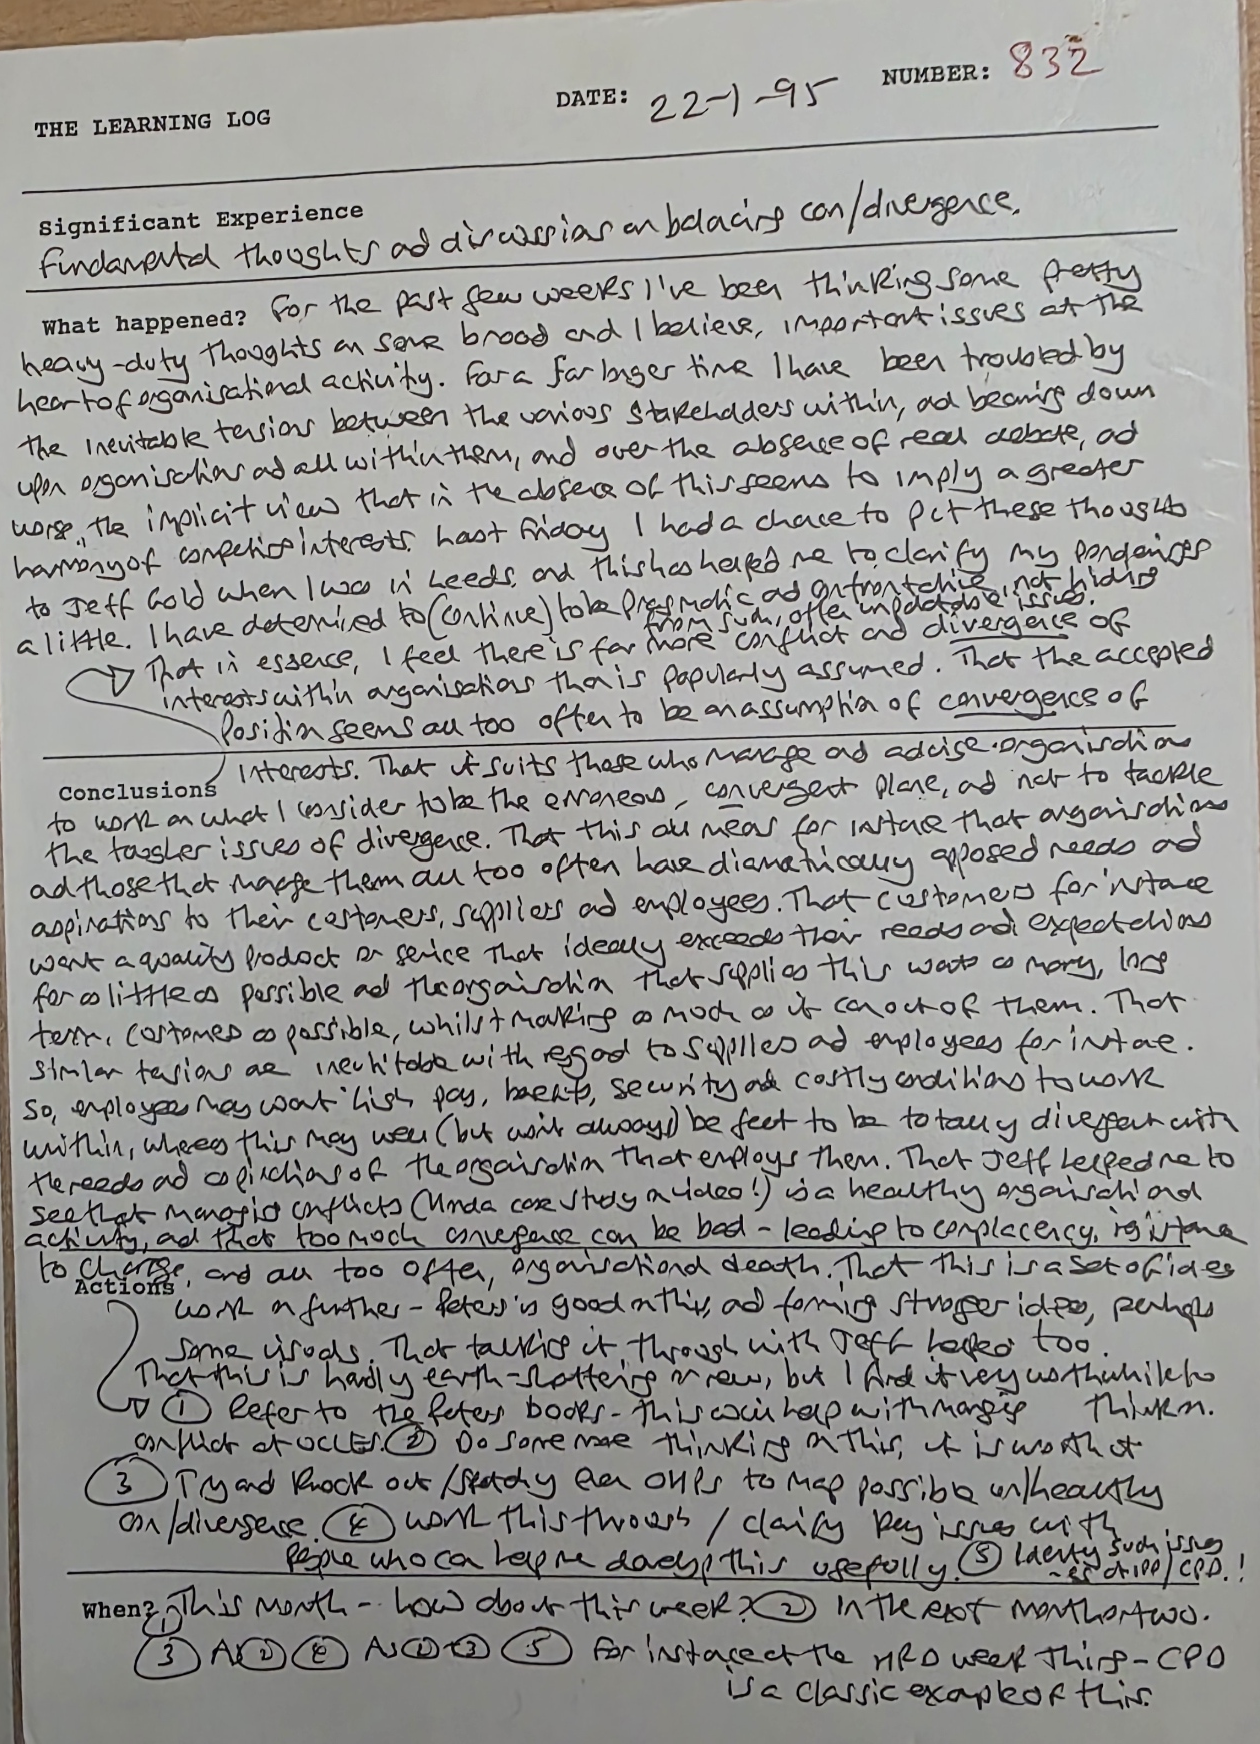 THE LEARNING LOG DATE: 22-1-95 NUMBER: 832
Significant Experience
Fundamental thoughts ad discussion on balacing con/divergence.
What happened? For the past few weeks I've been thinking some pretty
heavy-duty thoughts on some broad and I believe, important issues at the
heart of organisational activity. For a far longer time I have been troubled by
the inevitable tensions between the various stakeholders within, ad bearing down
upon organisations ad all within them, and over the absence of real debate, ad
worse, the implicit view that in the absece of this seems to imply a greater
harmony of competing interests. Last Friday I had a chace to put these thoughts
to Jeff Gold when I was in Leeds, and this has helped me to clarify my ponderings
a little. I have determined to (continue) to be pragmatic ad confrontative, not hiding
from such, often unpalatable issues.
That in essence, I feel there is far more conflict and divergence of
interests within organisations tha is popularly assumed. That the accepted
position seems all too often to be an assumption of convergence of
interests. That it suits those who manage ad advise organisations
Conclusions
to work on what I consider to be the erroneous, convergent plane, ad not to tackle
the tougher issues of divergence. That this all means for instace that organisations
ad those that manage them all too often have diametrically opposed needs ad
aspirations to their customers, suppliers ad employees. That customers for instace
want a quality product or service that ideally exceeds their needs ad expectations
for as little as possible ad the organisation that supplies this wants as many, long
term, customers as possible, whilst making as much as it can out of them. That
similar tensions are inevitable with regard to supplies ad employees for instace.
So, employees may want high pay, benefits, security ad costly conditions to work
within, wheres this may well (but won't always) be felt to be totally divergent with
the needs ad aspirations of the organisation that employs them. That Jeff helped me to
see that managing conflicts (Honda case study on video!) is a healthy organisational
activity, ad that too much convergence can be bad - leading to complacency, resistance
to change, and all too often, organisational death. That this is a set of ideas
Actions
work on further - Peters is good on this, ad forming stronger ideas, perhaps
some visuals. That talking it through with Jeff helped too.
That this is hardly earth-shattering or new, but I find it very worthwhile to
think on.
① Refer to the Peters books - this could help with managing
conflict at UCLES. ② Do some more thinking on this, it is worth it
③ Try and knock out/sketchy even OHPs to map possible un/healthy
con/divergence. ④ Work this through / clarify key issues with
people who can help me develop this usefully. ⑤ Identify such issues
- eg at IPD/CPD.!
When? ① This month - how about this week? ② In the next month or two.
③ As ② ④ As ② + ③ ⑤ For instace at the HRD week thing - CPD
is a classic example of this.